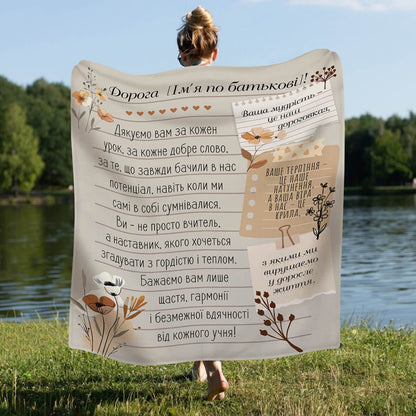 Дорога [Ім'я по батькові]!
Дякуємо вам за кожен
урок, за кожне добре слово,
за те, що завжди бачили в нас
потенціал, навіть коли ми
самі в собі сумнівалися.
Ви - не просто вчитель,
а наставник, якого хочеться
згадувати з гордістю і теплом.
Бажаємо вам лише
щастя, гармонії
і безмежної вдячності
від кожного учня!
Ваша мудрість –
це наш
дороговказ,
ВАШЕ ТЕРПІННЯ –
ЦЕ НАШЕ
НАТХНЕННЯ,
А ВАША ВІРА
В НАС – ЦЕ
КРИЛА,
з якими ми
вирушаємо
у доросле
життя.